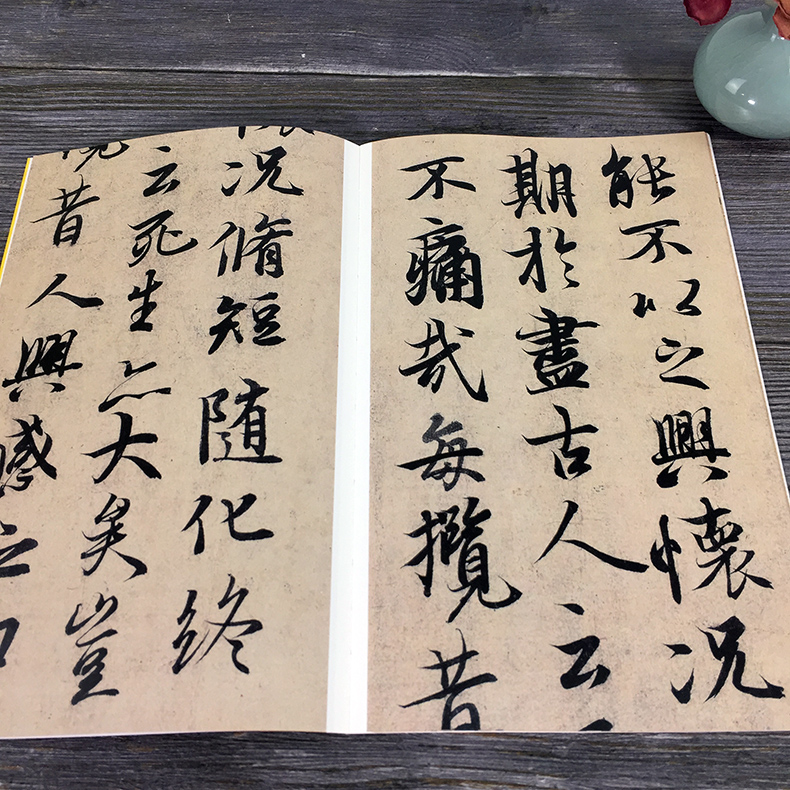 能不以之興懷況
期於盡古人云
不痛哉每攬昔
況脩短随化終
云死生亦大矣豈
昔人興感之